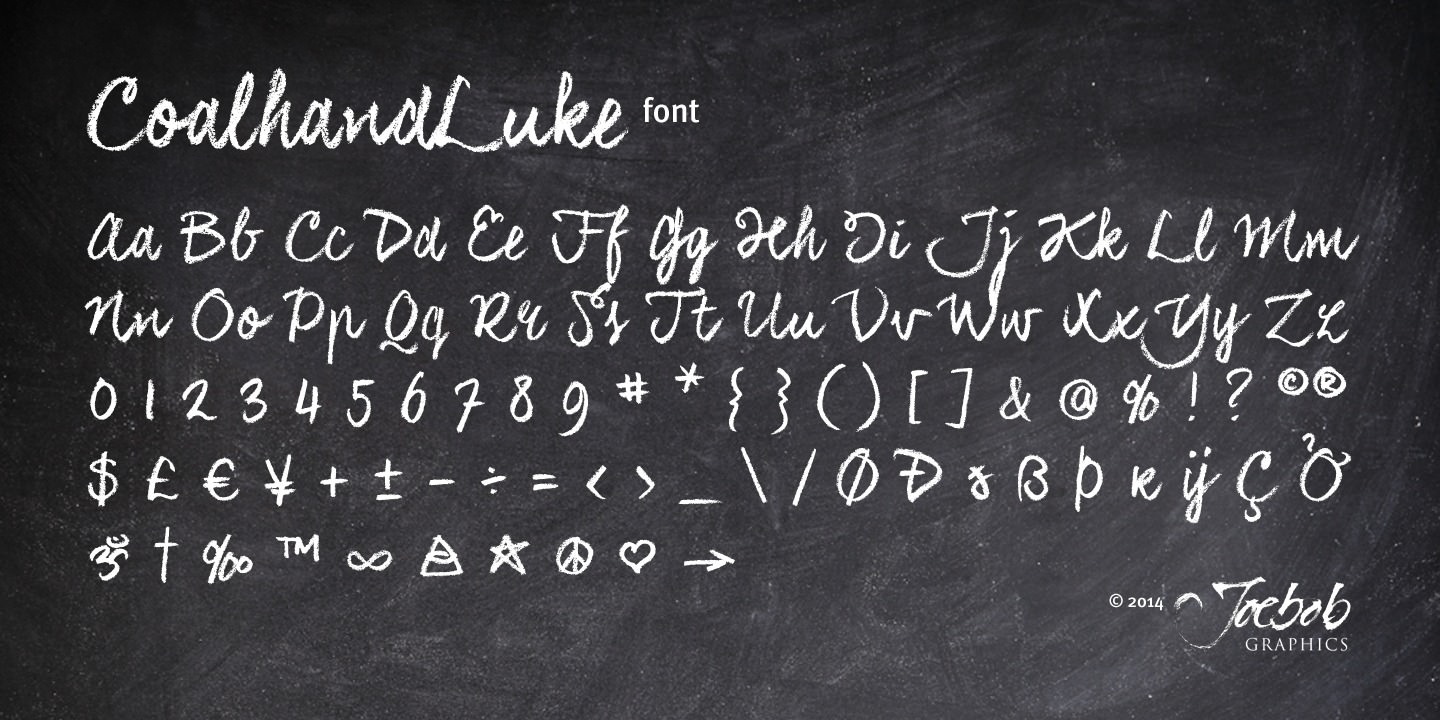 CoalhandLuke font
Aa Bb Cc Dd Ee Ff Gg Hh Ii Jj Kk Ll Mm
Nn Oo Pp Qq Rr Ss Tt Uu Vv Ww Xx Yy Zz
0 1 2 3 4 5 6 7 8 9 # * { } ( ) [ ] & @ % ! ? © ®
$ £ € ¥ + ± − ÷ = < > _ \ / Ø Đ ʑ ß þ ĸ ÿ Ç Ở
ॐ † ‰ ™ ∞ ★ ☮ ♡ →
© 2014 Joebob
GRAPHICS